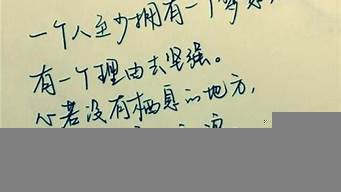 一个人至少拥有一个梦想,
有一个理由去坚强。
心若没有栖息的地方,